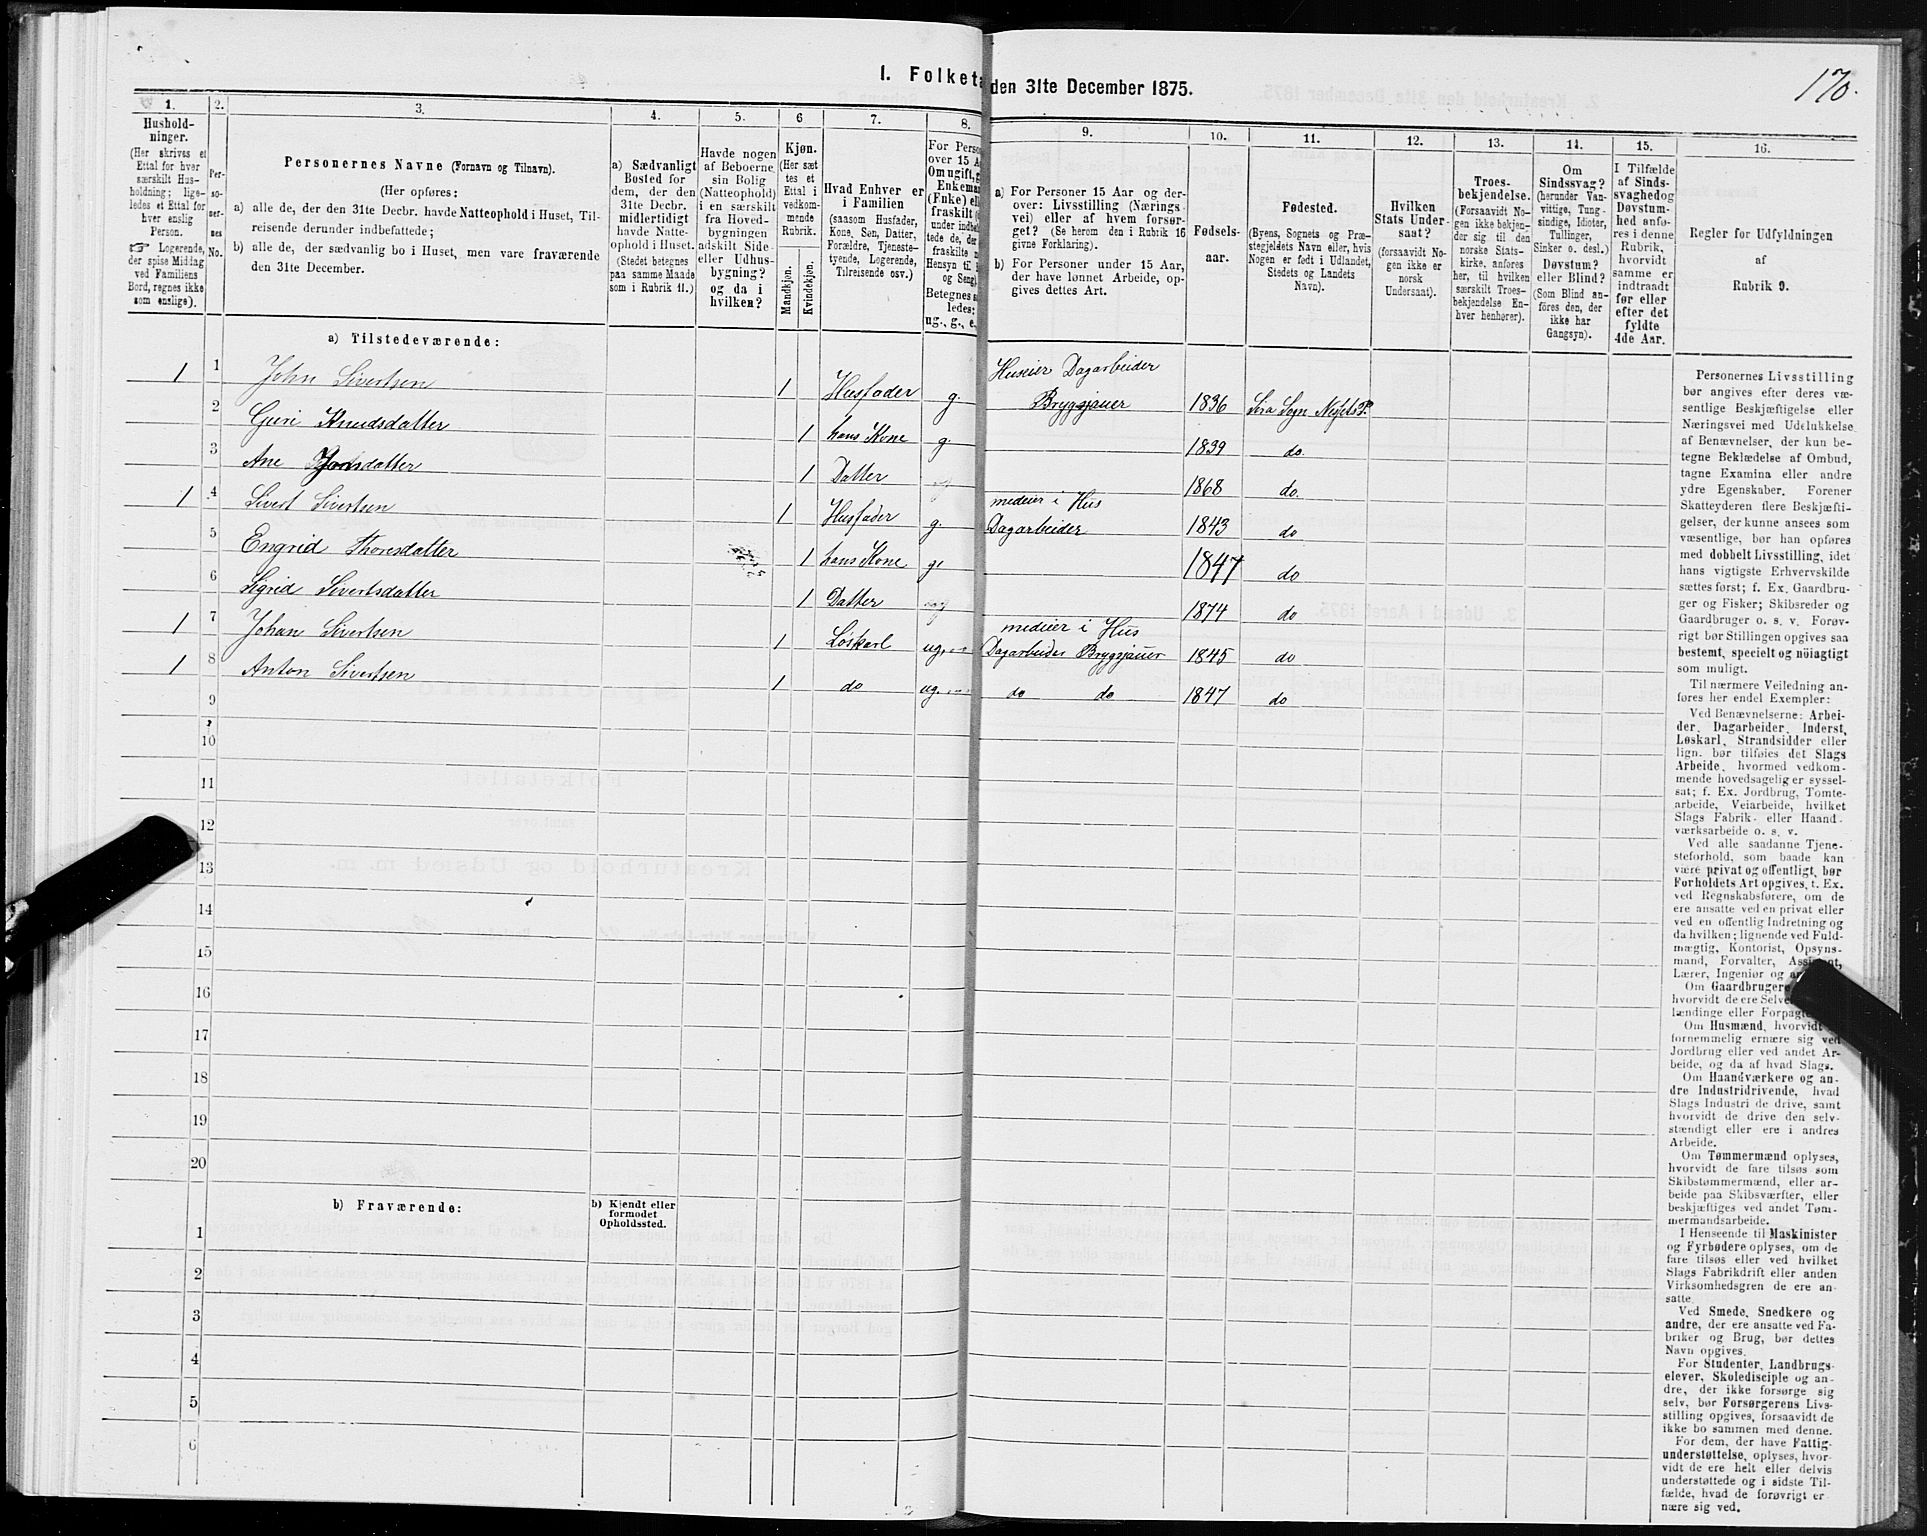 1. Folketæ
den 31te December 1875.
170.
1.
2.
3.
4.
5.
6
7.
8.
9.
10.
11.
12.
13.
14.
15.
16.
Hushold-
ninger.
(Her skrives et
Ettal for hver
særskilt Hus-
holdning; lige-
ledes et Ettal for
hver enslig
Person.
☞ Logerende,
der spise Middag
ved Familiens
Bord, regnes ikke
som enslige).
Per-
so-
ner-
nes
No.
Personernes Navne (Fornavn og Tilnavn).
(Her opføres:
a) alle de, der den 31te Decbr. havde Natteophold i Huset, Til-
reisende derunder indbefattede;
b) alle de, der sædvanlig bo i Huset, men vare fraværende
den 31te December.
a) Sædvanligt
Bosted for
dem, der den
31te Decbr.
midlertidigt
havde Natte-
ophold i Huset.
(Stedet betegnes
paa samme Maade
som i Rubrik 11.)
Havde nogen
af Beboerne
sin Bolig
(Natteophold)
i en særskilt
fra Hoved-
bygningen
adskilt Side-
eller Udhus-
bygning?
og da i
hvilken?
Kjøn.
(Her sæt
tes et
Ettal i
vedkom-
mende
Rubrik.
Mandkjøn.
Kvindekjøn.
Hvad Enhver er
i Familien
(saasom Husfader,
Kone, Søn, Datter,
Forældre, Tjeneste-
tyende, Logerende,
Tilreisende osv.)
For Perso
over 15 A
Om ugift, g
Enkeman
(Enke) el
fraskilt (
under indbe
tede de, der
fraskilte
Hensyn til
og Seng)
Betegnes
ledes:
ug., g., e.
a) For Personer 15 Aar og der-
over: Livsstilling (Nærings-
vei) eller af hvem forsør-
get? (Se herom den i Rubrik 16
givne Forklaring).
b) For Personer under 15 Aar,
der have lønnet Arbeide, op-
gives dettes Art.
Fødsels-
aar.
Fødested.
(Byens, Sognets og Præ-
stegjeldets Navn eller, hvis
Nogen er født i Udlandet,
Stedets og Landets
Navn).
Hvilken
Stats Under-
saat?
(forsaavidt No-
gen ikke er
norsk
Undersaat).
Troes-
bekjendelse.
(Forsaavidt No-
gen ikke bekjen-
der sig til den
norske Stats-
kirke, anføres
her, til hvilken
særskilt Troes-
bekjendelse En-
hver henhører).
Om
Sindssvag?
(herunder Van-
vittige, Tung-
sindige, Idioter,
Tullinger,
Sinker o. desl.)
Døvstum?
eller Blind?
(Som Blind an-
føres den, der
ikke har
Gangsyn).
I Tilfælde
af Sinds-
svaghed og
Døvstum-
hed anfø-
res i denne
Rubrik,
hvorvidt
samme er
indtraadt
før eller
efter det
fyldte
4de Aar.
Regler for Udfyldningen
af
Rubrik 9.
a) Tilstedeværende:
1 1 John Sivertsen 1 Husfader g. Huseier Dagarbeider
Brygsjauer 1836
2 Guri Knudsdatter 1 hans Kone g. 1839 do.
3 Ane Jonsdatter 1 Datter 1868 do.
1 4 Sivert Sivertsen 1 Husfader g. medeier i Hus
Dagarbeider 1843 do
5 Engrid Thoresdatter 1 hans Kone g. 1847 do
6 Sigrid Sivertsdatter 1 Datter 1874 do
1 7 Johan Sivertsen 1 Løskarl ug. medeier i Hus
Dagarbeider Brygsjauer 1845 do
1 8 Anton Sivertsen 1 do ug. do do 1847 do
9
10
11
12
13
14
15
16
17
18
19
20
b) Fraværende:
b) Kjendt eller
formodet
Opholdssted.
1
2
3
4
5
6
Personernes Livsstilling
bør angives efter deres væ-
sentlige Beskjæftigelse eller
Næringsvei med Udelukkelse
af Benævnelser, der kun be-
tegne Beklædelse af Ombud,
tagne Examina eller andre
ydre Egenskaber. Forener
Skatteyderen flere Beskjæfti-
gelser, der kunne ansees som
væsentlige, bør han opføres
med dobbelt Livsstilling, idet
hans vigtigste Erhvervskilde
sættes først; f. Ex. Gaardbru-
ger og Fisker; Skibsreder og
Gaardbruger o. s. v. Forøv-
rigt bør Stillingen opgives saa
bestemt, specielt og nöiagtigt
som muligt.
Til nærmere Veiledning an-
føres her endel Exempler:
Ved Benævnelserne: Arbei-
der, Dagarbeider, Inderst,
Løskarl, Strandsidder eller
lign. bør tilføies det Slags
Arbeide, hvormed vedkom-
mende hovedsagelig er syssel-
sat; f. Ex. Jordbrug, Tomte-
arbeide, Veiarbeide, hvilket
Slags Fabrik- eller Haand-
værksarbeide o. s. v.
Ved alle saadanne Tjene-
steforhold, som baade kan
være privat og offentligt, bør
Forholdets Art opgives, t. Ex.
ved Regnskabsførere, om de
ere ansatte ved en privat eller
ved en offentlig Indretning og
da hvilken; lignende ved Fuld-
mægtig, Kontorist, Opsyns-
mand, Forvalter, Assistent,
Lærer, Ingeniør og
Om Gaardbrugere
hvorvidt de ere Selve
lændinge eller Forpagte
Om Husmænd, hvorvidt
fornemmelig ernære sig ved
Jordbrug eller ved andet Ar-
beide, og da af hvad Slags.
Om Haandværkere og an-
dre Industridrivende, hvad
Slags Industri de drive, samt
hvorvidt de drive den selv-
stændigt eller ere i andres
Arbeide.
Om Tømmermænd oplyses,
hvorvidt de fare tilsøs som
Skibstømmermænd, eller ar-
beide paa Skibsværfter, eller
beskjæftiges ved andet Tøm-
mermandsarbeide.
I Henseende til Maskinister
og Fyrbødere oplyses, om de
fare tilsøs eller ved hvilket
Slags Fabrikdrift eller anden
Virksomhedsgren de ere an-
satte.
Ved Smede, Snedkere og
andre, der ere ansatte ved Fa-
briker og Brug, bør dettes
Navn opgives.
For Studenter, Landbrugs-
elever, Skoledisciple og an-
dre, der ikke forsørge sig
selv, bør Forsørgerens Livs-
stilling opgives, forsaavidt de
ikke bo sammen med denne.
For dem, der have Fattig-
understøttelse, oplyses, hvor-
vidt de ere helt eller delvis
understøttede og i sidste Til-
fælde, hvad de forøvrigt er-
nære sig ved.